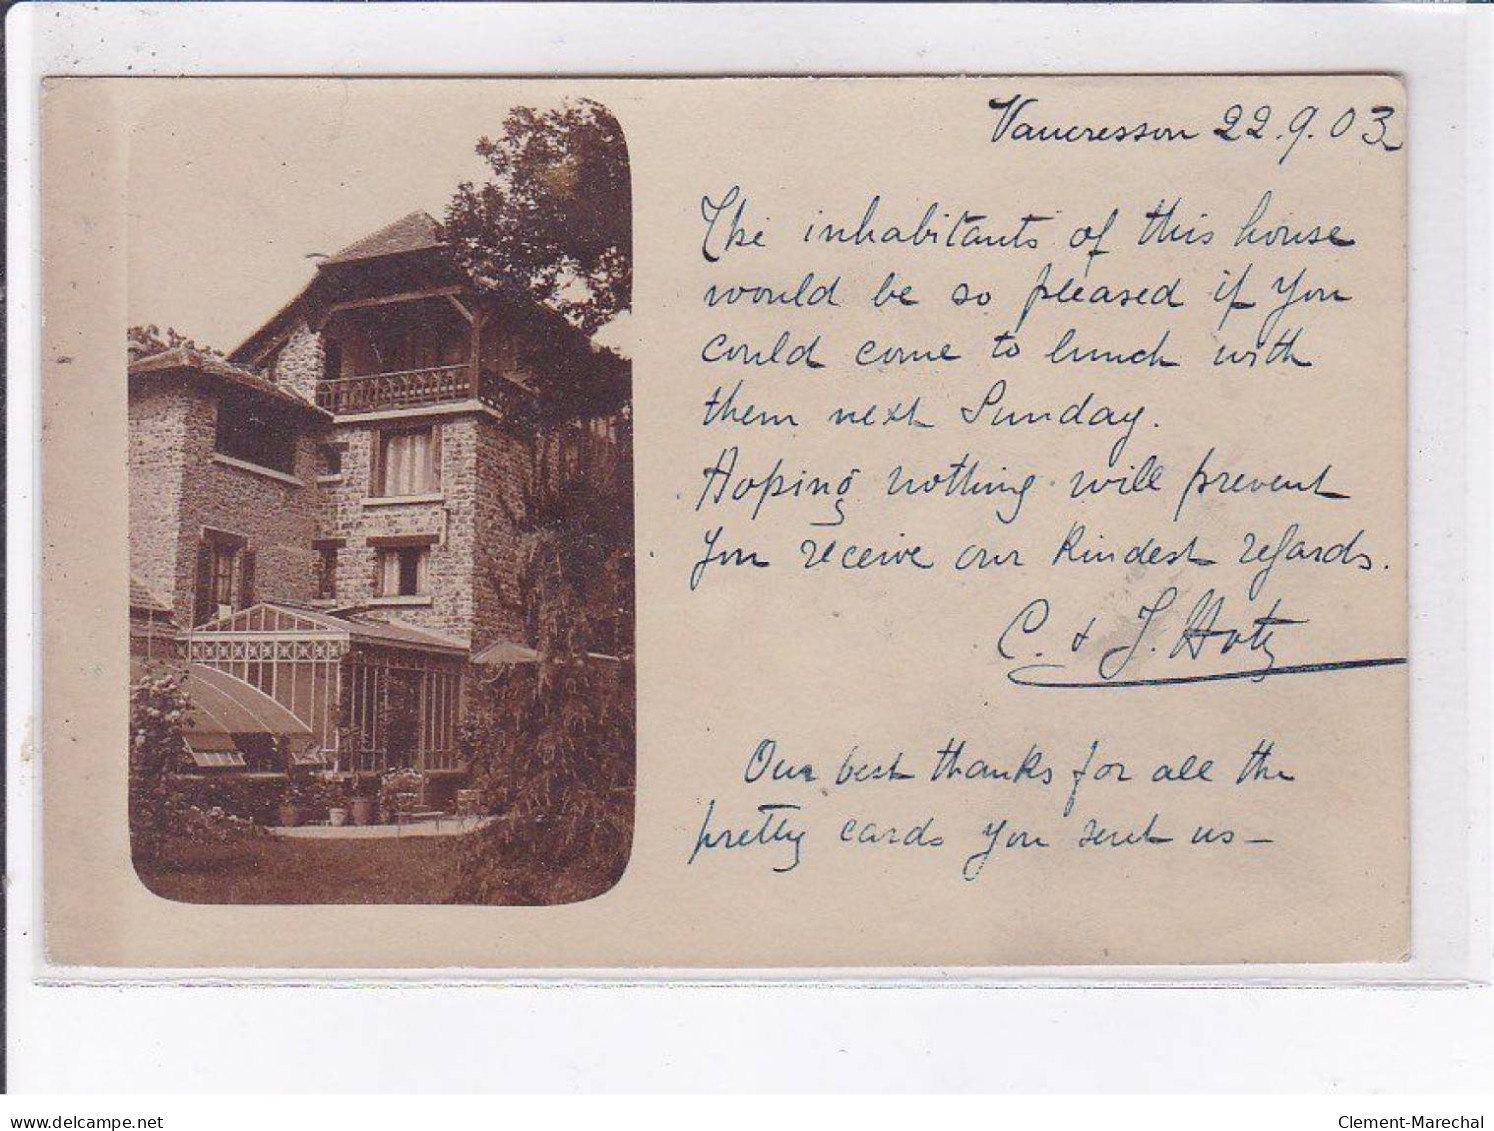 Vaucresson 22.9.03
The inhabitants of this house
would be so pleased if you
could come to lunch with
them next Sunday.
Hoping nothing will prevent
you receive our kindest regards.
C. & J. Hotz
Our best thanks for all the
pretty cards you sent us —
www.delcampe.net
Clement-Marechal